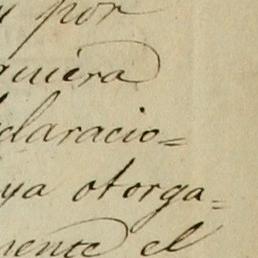 y por
quiera
claracio=
ya otorga=
mente el